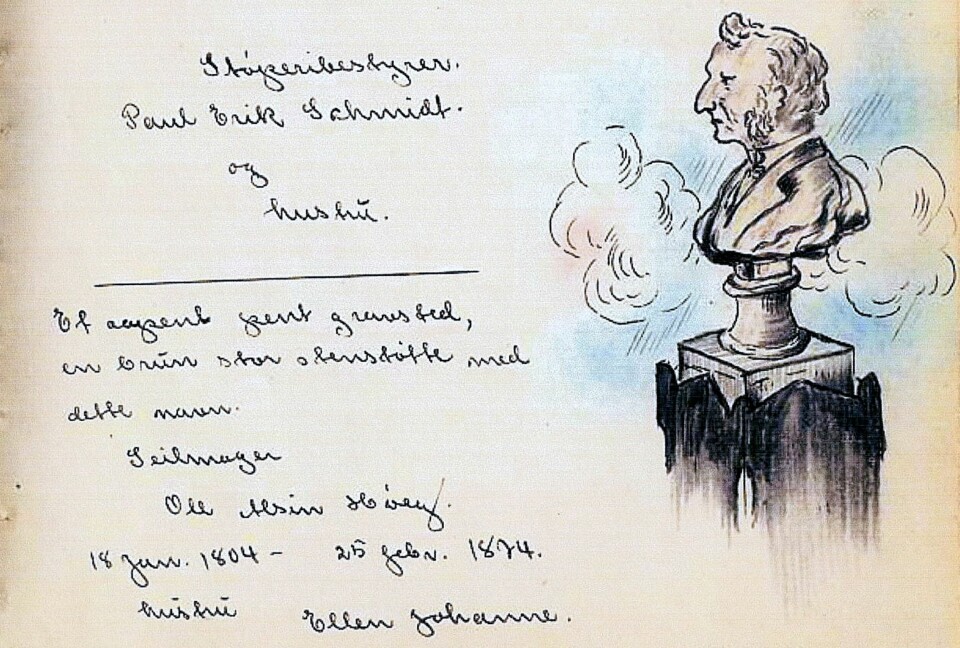 Støperibestyrer.
Paul Erik Schmidt.
og
hustru.
Et aapent pent gravsted,
en brun stor stenstøtte med
dette navn.
Seilmager
Ole
18 Jan. 1804 - 25 febr. 1874.
hustru Ellen Johanne.